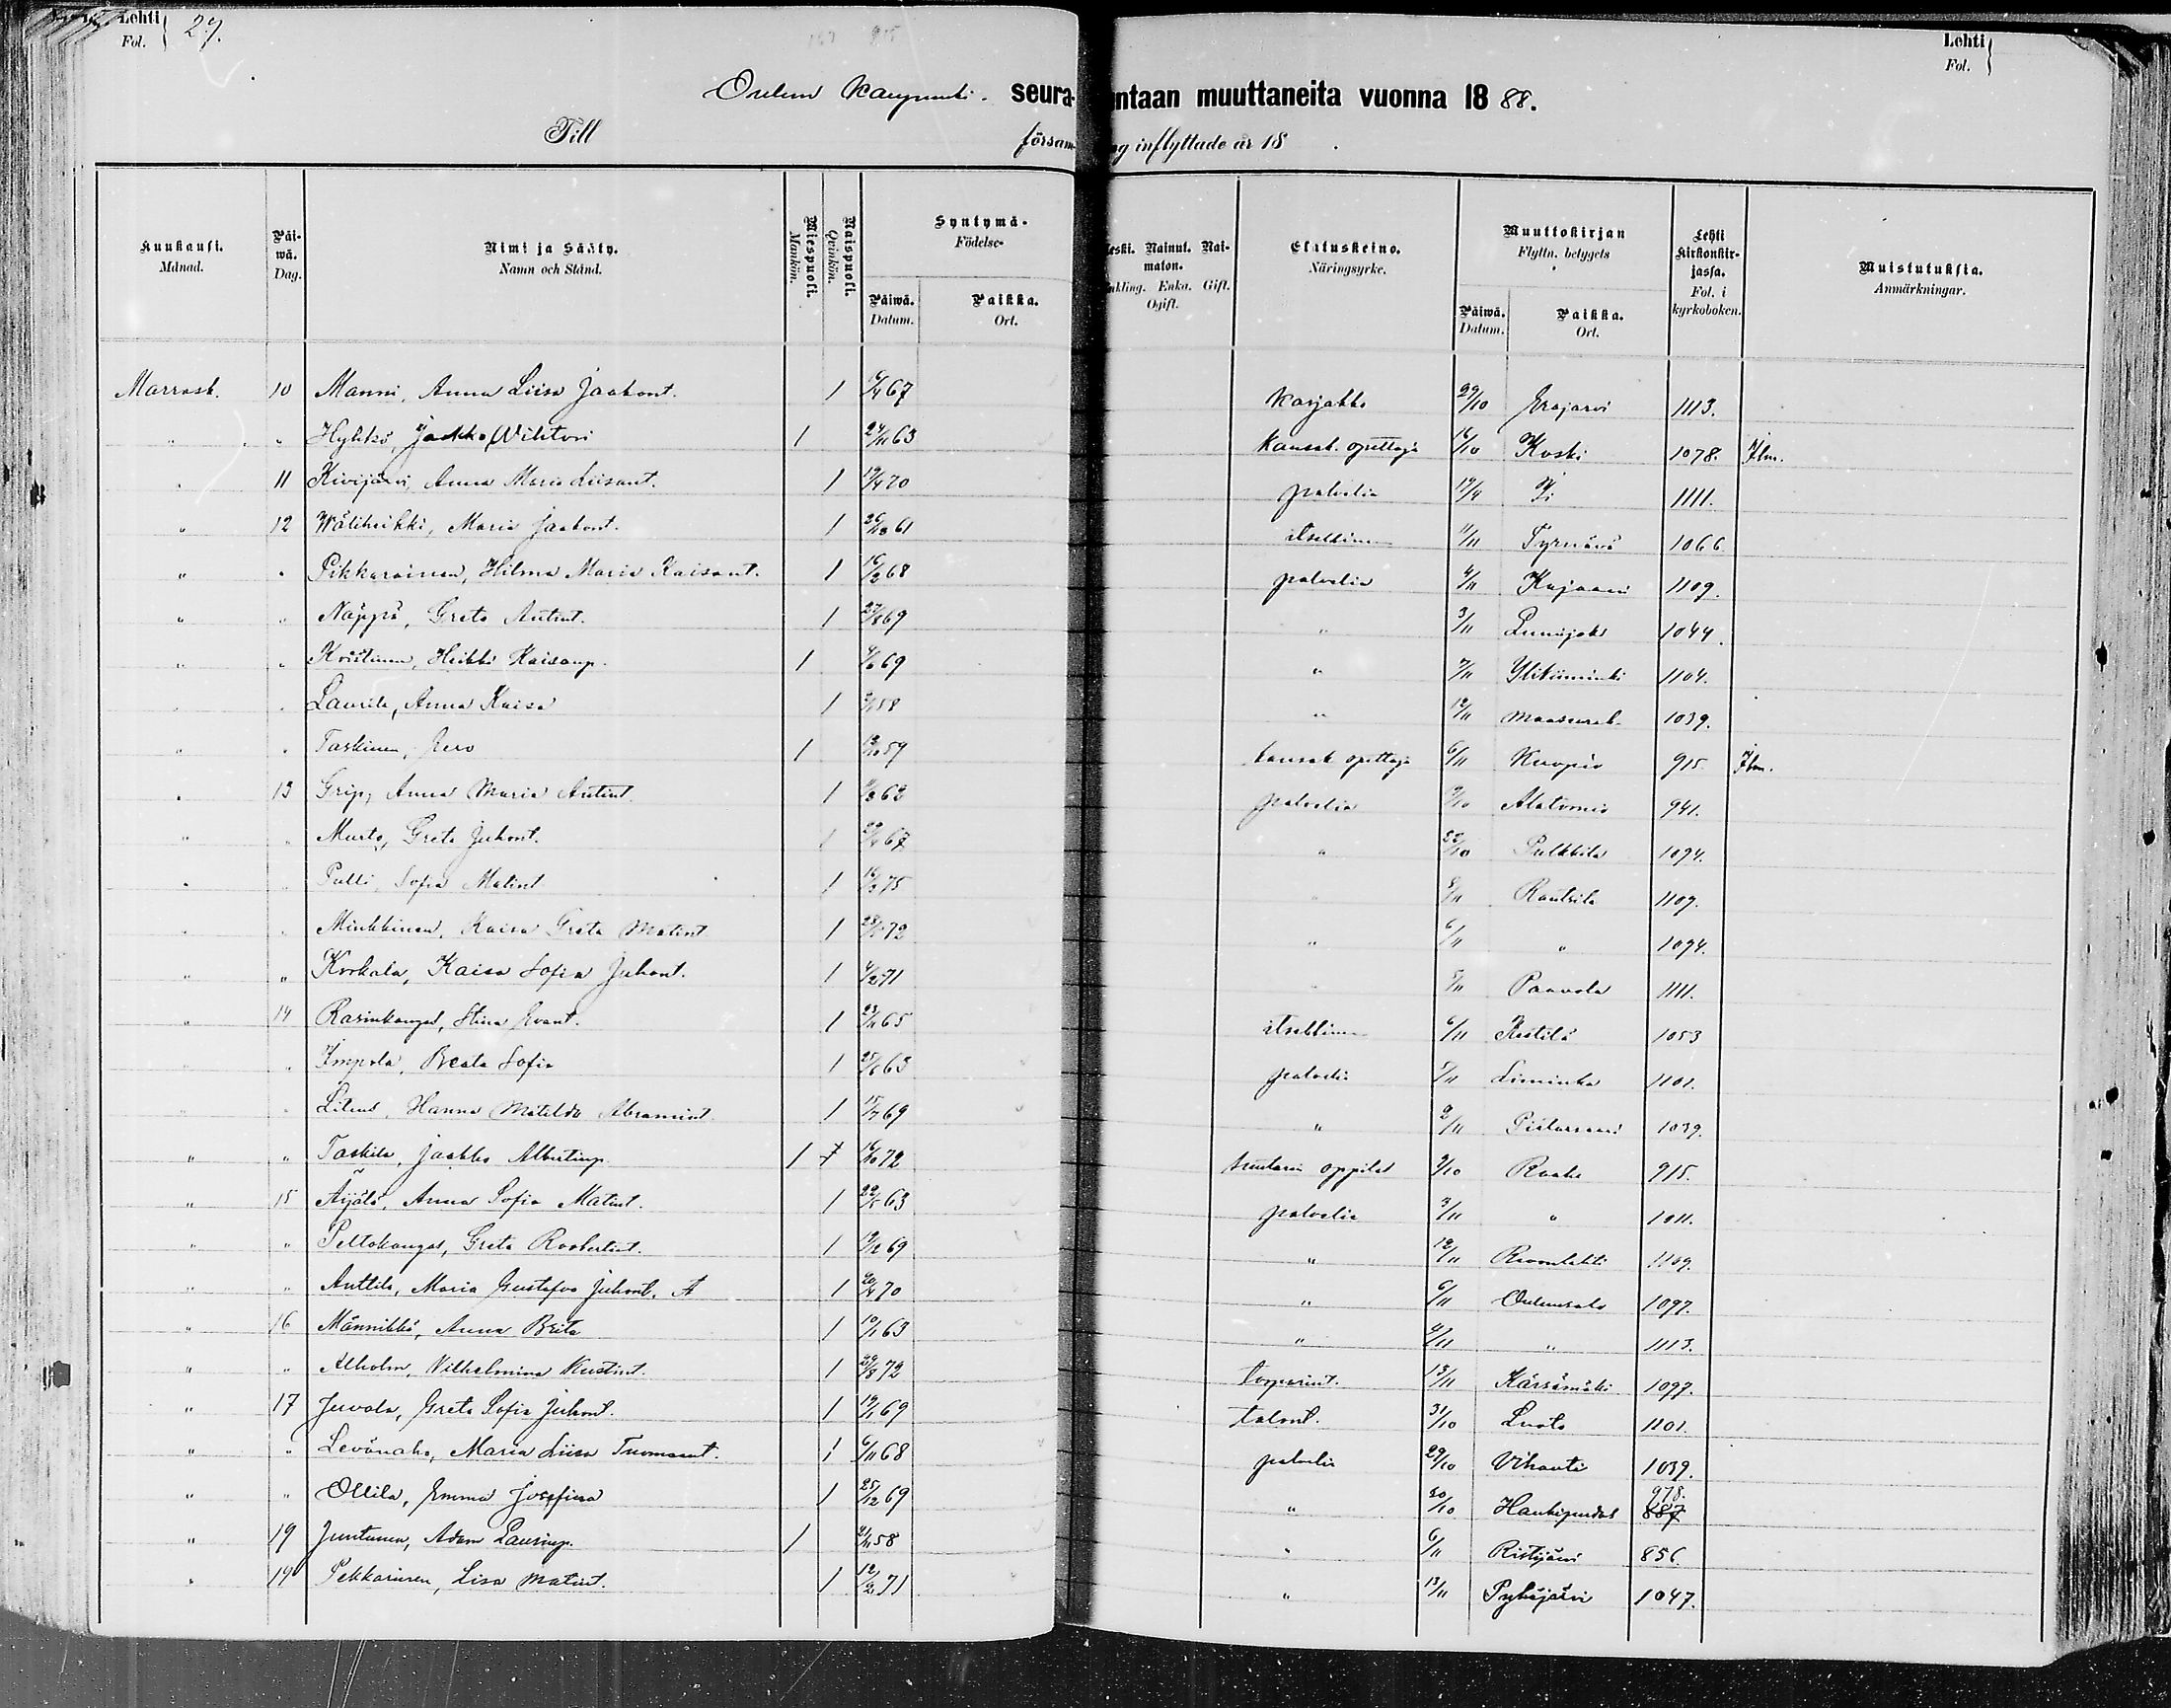 Lehti
Fol. 27.
Lehti
Fol.
Oulun kaupunki. seura- ntaan muuttaneita vuonna 18 88.
Till försam- ng inflyttade år 18 .
Kuukausi. Månad. Päi-wä. Dag. Nimi ja Sääty. Namn och Stånd. Miespuoli. Mankön. Naispuoli. Qvinkön. Syntymä- Födelse- Päiwä. Datum. Paikka. Ort. eski. Nainut. Nai-maton. nkling. Enka. Gift. Ogift. Elatuskeino. Näringsyrke. Muuttokirjan Flyttn. betygets Päiwä. Datum. Paikka. Ort. Lehti kirkonkir-jassa. Fol. i kyrkoboken. Muistutuksia. Anmärkningar.
Marrask. 10 Manni, Anna Liisa Jaakont. 1 16/4 67 karjakko 29/10 Eräjärvi 1113.
" " Hykkö, Jaakko Wihtori 1 24/11 63 kansak. opettaja 16/10 Koski 1078. Ilm.
" 11 Kivijärvi, Anna Maria Liisant. 1 19/4 70 palvelia 19/4 Ii 1111.
" 12 Wäliheikki, Maria Jaakont. 1 26/10 61 itsellinen 11/11 Tyrnävä 1066
" " Pikkarainen, Hilma Maria Kaisant. 1 16/2 68 palvelia 4/11 Kajaani 1109.
" " Näppä, Greta Antint. 1 27/8 69 " 3/11 Lumijoki 1044.
" " Heikki Kaisanp. 1 69 " 7/11 Ylikiiminki 1104.
" " Laurila, Anna Kaisa 1 58 " 12/11 maaseurak. 1039.
" " Taskinen, Iero 1 59 kansak opettaja 6/11 Kuopio 915. Ilm.
" 13 Grip, Anna Maria Antint. 1 62 palvelia 9/10 Alatornio 941.
" " Murto, Greta Juhont. 1 67 " 22/10 Pulkkila 1094.
" " Pulli, Sofia Matint 1 75 " 5/11 Rantsila 1109.
" " Minkkinen, Kaisa Greta Matint 1 72 " 6/11 " 1094.
" " Korkala, Kaisa Sofia Juhont. 1 4/2 71 " 5/11 Paavola 1111.
" 14 Rasinkangas, Stina 1 23/11 65 itsellinen 6/11 Kestilä 1053
" " Impola, Beata Sofia 1 63 palvelia 5/11 Liminka 1101.
" " Hanna Matilda Abramint. 1 15/7 69 " 2/11 Pietarsaari 1039.
" " Taskila, Jaakko Albertinp. 1 16/10 72 oppilas 9/10 Raahe 915.
" 15 Äijälä, Anna Sofia Matint. 1 63 palvelia 3/11 " 1011.
" " Peltokangas, Greta Roobertint. 1 69 " 12/11 Revonlahti 1109.
" " Anttila, Maria Gustafva Juhont. A 1 20/4 70 " 6/11 Oulunsalo 1097.
" 16 Männikkö, Anna Brita 1 63 " 4/11 " 1113.
" " Alholm, Wilhelmina Kustint. 1 29/8 72 torparint. 13/11 Kärsämäki 1097.
" 17 Juvola, Greta Sofia Juhont. 1 69 talont. 31/10 Luoto 1101.
" " Levänaho, Maria Liisa Tuomaant. 1 6/11 68 palvelia 29/10 Vihanti 1039.
" " Ollila, Emma Josefiina 1 25/12 69 " 30/10 Haukipudas 978. 887
" 19 Juntunen, Adam Laurinp. 1 58 " 6/11 Ristijärvi 856.
" 19 Pekkarinen, Lisa Matint. 1 12/2 71 " 13/11 Pyhäjärvi 1047.